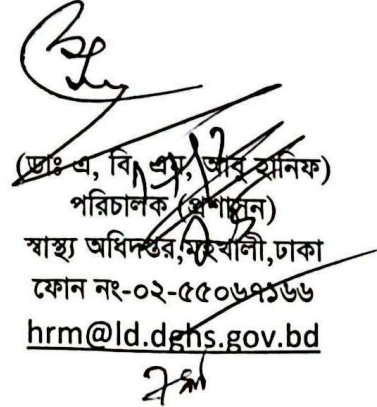 (ডাঃ এ, বি, এম, আবু হানিফ)
পরিচালক (প্রশাসন)
স্বাস্থ্য অধিদপ্তর,মহাখালী,ঢাকা
ফোন নং-০২-৫৫০৬৭১৬৬
hrm@ld.dghs.gov.bd